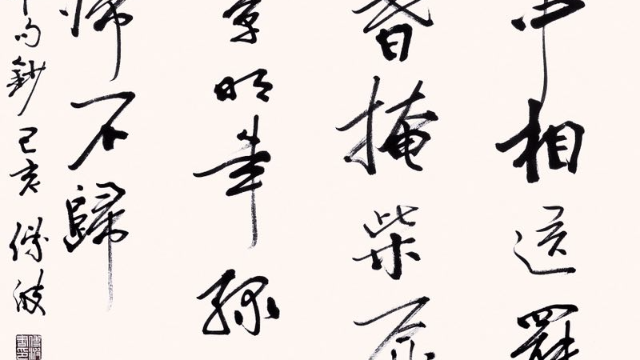 中相送罷
暮掩柴扉
草明年綠
歸不歸
句鈔己亥